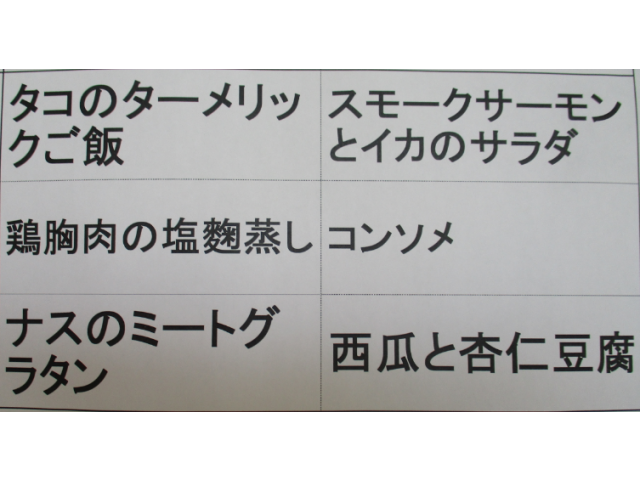 タコのターメリッ
クご飯
スモークサーモン
とイカのサラダ
鶏胸肉の塩麴蒸し
コンソメ
ナスのミートグ
ラタン
西瓜と杏仁豆腐